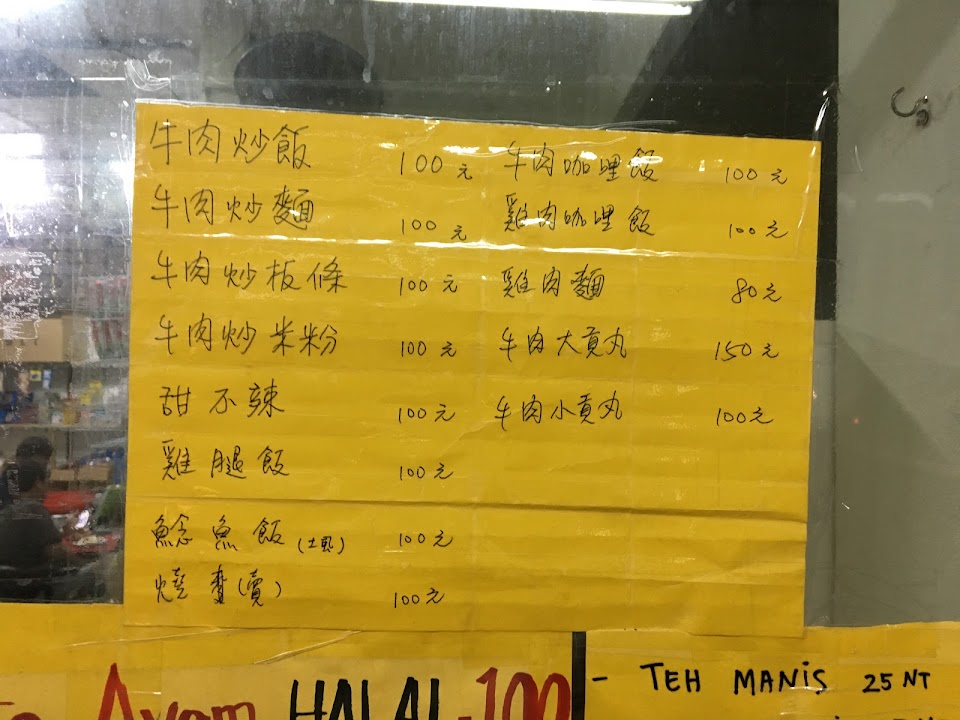 牛肉炒飯 100元
牛肉炒麵 100元
牛肉炒板條 100元
牛肉炒米粉 100元
甜不辣 100元
雞腿飯 100元
鯰魚飯(土虱) 100元
燒賣(賣) 100元
牛肉咖哩飯 100元
雞肉咖哩飯 100元
雞肉麵 80元
牛肉大貢丸 150元
牛肉小貢丸 100元
Ayam HALAL -100
- TEH MANIS 25 NT